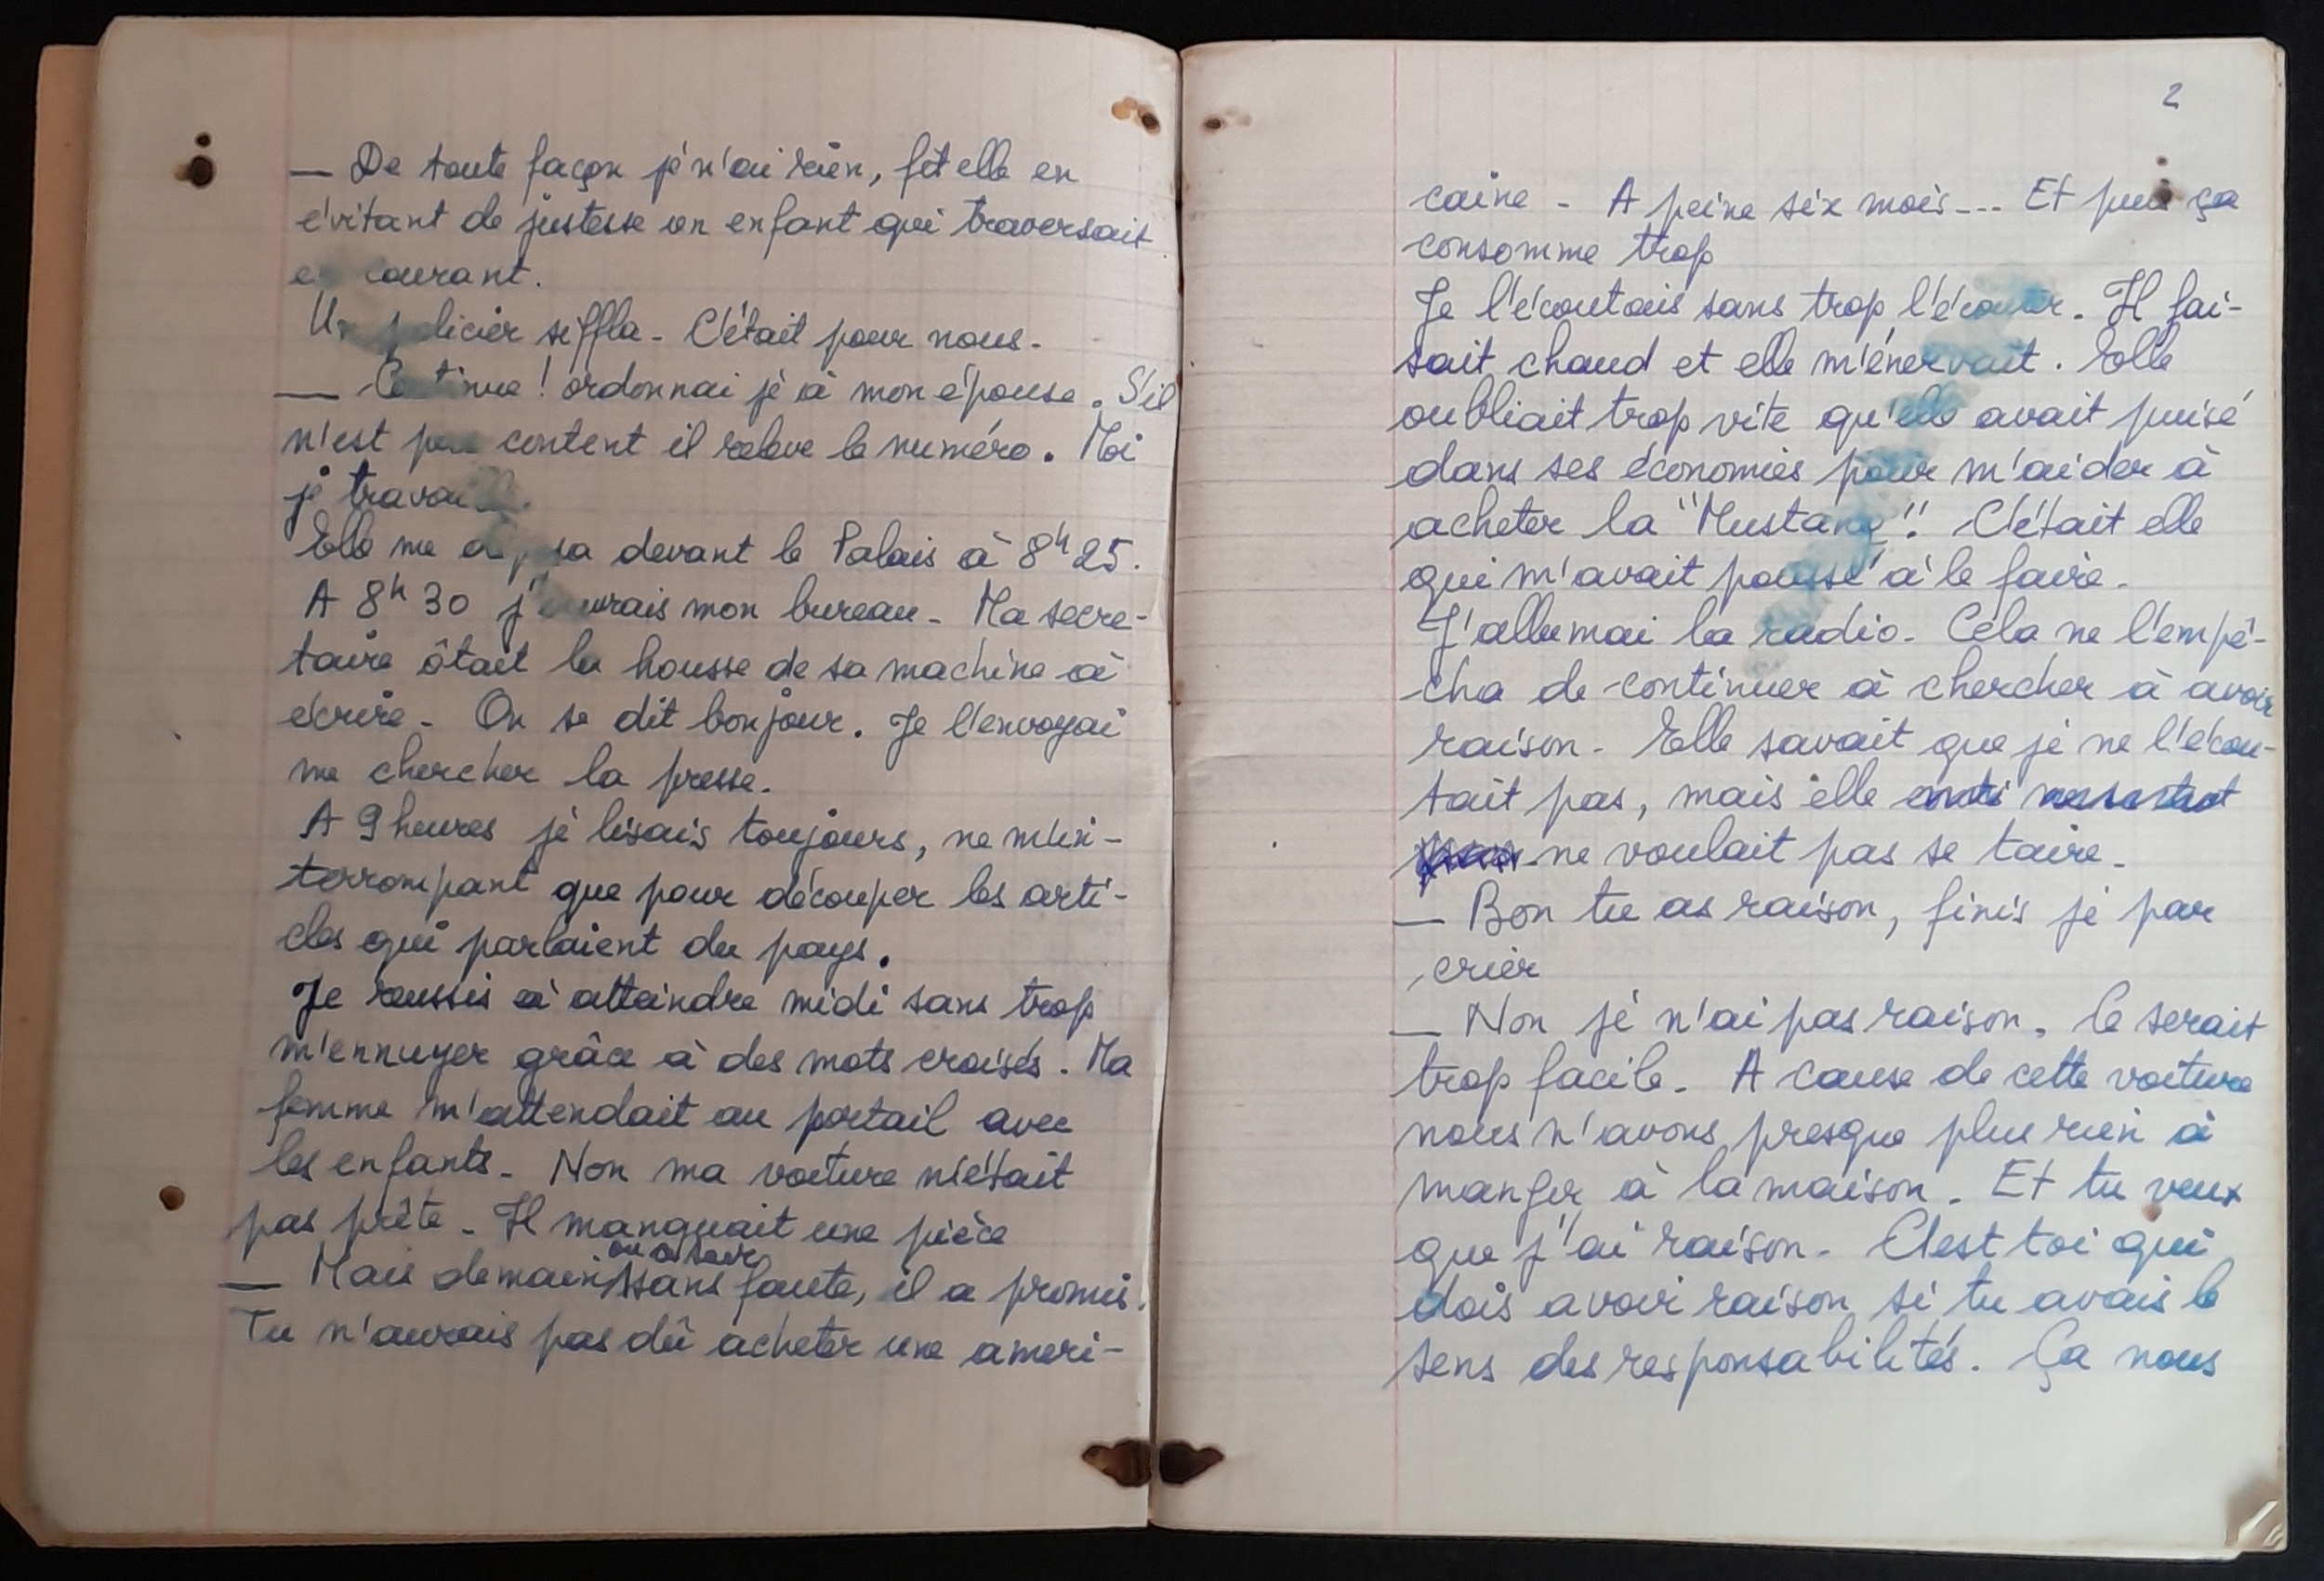 — De toute façon je n'ai rien, fit elle en
évitant de justesse un enfant qui traversait
en courant.
Un policier siffla - C'était pour nous -
— Continue ! ordonnai je à mon épouse. S'il
n'est pas content il relève le numéro. Moi
je travaille.
Elle me déposa devant le Palais à 8h 25.
A 8h 30 j'ouvrais mon bureau - Ma secre-
taire ôtait la housse de sa machine à
écrire - On se dit bonjour. Je l'envoyai
me chercher la presse.
A 9 heures je lisais toujours, ne m'in-
terrompant que pour découper les arti-
cles qui parlaient du pays.
Je reussis à atteindre midi sans trop
m'ennuyer grâce à des mots croisés. Ma
femme m'attendait au portail avec
les enfants - Non ma voiture n'était
pas prête - Il manquait une pièce
— Mais demain sans faute, il a promis.
Tu n'aurais pas dû acheter une ameri-
2
caine - A peine six mois --- Et puis ça
consomme trop
Je l'écoutais sans trop l'écouter. Il fai-
sait chaud et elle m'énervait. Elle
oubliait trop vite qu'elle avait puisé
dans ses économies pour m'aider à
acheter la "Mustang". C'était elle
qui m'avait poussé à le faire -
J'allumai la radio - Cela ne l'empê-
cha de continuer à chercher à avoir
raison - Elle savait que je ne l'écou-
tait pas, mais elle
ne voulait pas se taire -
— Bon tu as raison, finis je par
crier
— Non je n'ai pas raison. Ce serait
trop facile - A cause de cette voiture
nous n'avons presque plus rien à
manger à la maison. Et tu veux
que j'ai raison - C'est toi qui
dois avoir raison si tu avais le
sens des responsabilités. Ça nous